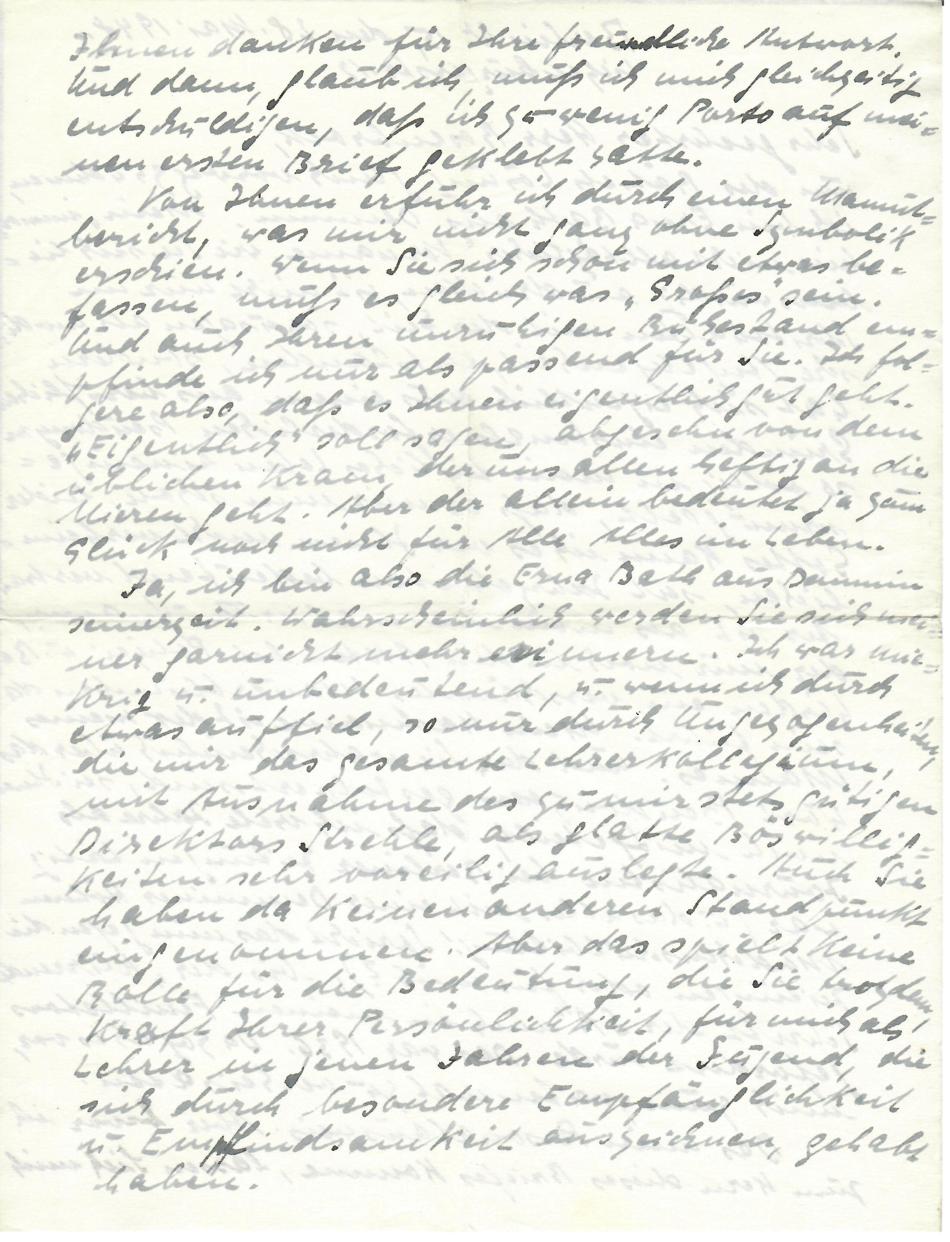 Ihnen danken für Ihre freundliche Antwort.
Und dann, glaub ich, muß ich mich gleichzeitig
entschuldigen, daß ich zu wenig Porto auf mei-
nen ersten Brief geklebt hatte.
Von Ihnen erfuhr ich durch einen Mamut-
bericht, was mir nicht ganz ohne Symbolik
erschien. Wenn Sie sich schon mit etwas be-
fassen, muß es gleich was „Großes" sein.
Und auch Ihren unruhigen Ruhestand em-
pfinde ich nur als passend für Sie. Ich fol-
gere also, daß es Ihnen eigentlich gut geht.
„Eigentlich" soll sagen, abgesehn von dem
üblichen Kram, der uns allen heftig an die
Nieren geht. Aber der allein bedeutet ja zum
Glück noch nicht für Alle Alles im Leben.
Ja, ich bin also die Erna Bath aus Demmin
seinerzeit. Wahrscheinlich werden Sie sich mei-
ner garnicht mehr erinnern. Ich war mie-
krig u. unbedeutend, u. wenn ich durch
etwas auffiel, so nur durch Ungezogenheiten,
die mir das gesamte Lehrerkollegium,
mit Ausnahme des zu mir stets gütigen
Direktors Strehle, als glatte Böswillig-
keiten sehr voreilig auslegte. Auch Sie
haben da keinen anderen Standpunkt
eingenommen. Aber das spielt keine
Rolle für die Bedeutung, die Sie trotzdem,
Kraft Ihrer Persönlichkeit, für mich als
Lehrer in jenen Jahren der Jugend, die
sich durch besondere Empfänglichkeit
u. Empfindsamkeit auszeichnen, gehabt
haben.